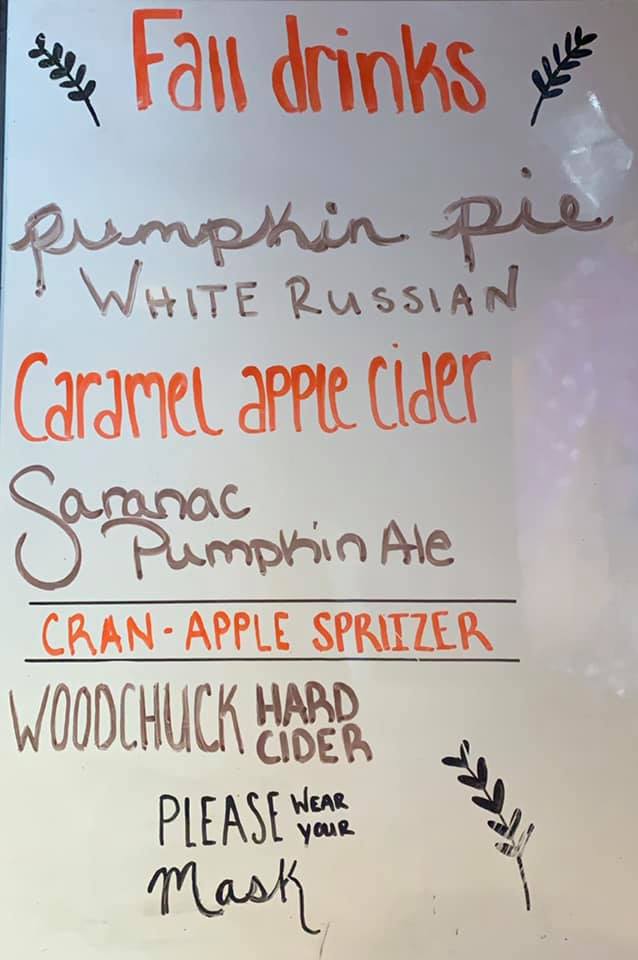 Fall drinks
pumpkin pie
WHITE RUSSIAN
Caramel apple cider
Saranac
Pumpkin Ale
CRAN-APPLE SPRITZER
WOODCHUCK HARD
CIDER
PLEASE WEAR
YOUR
Mask